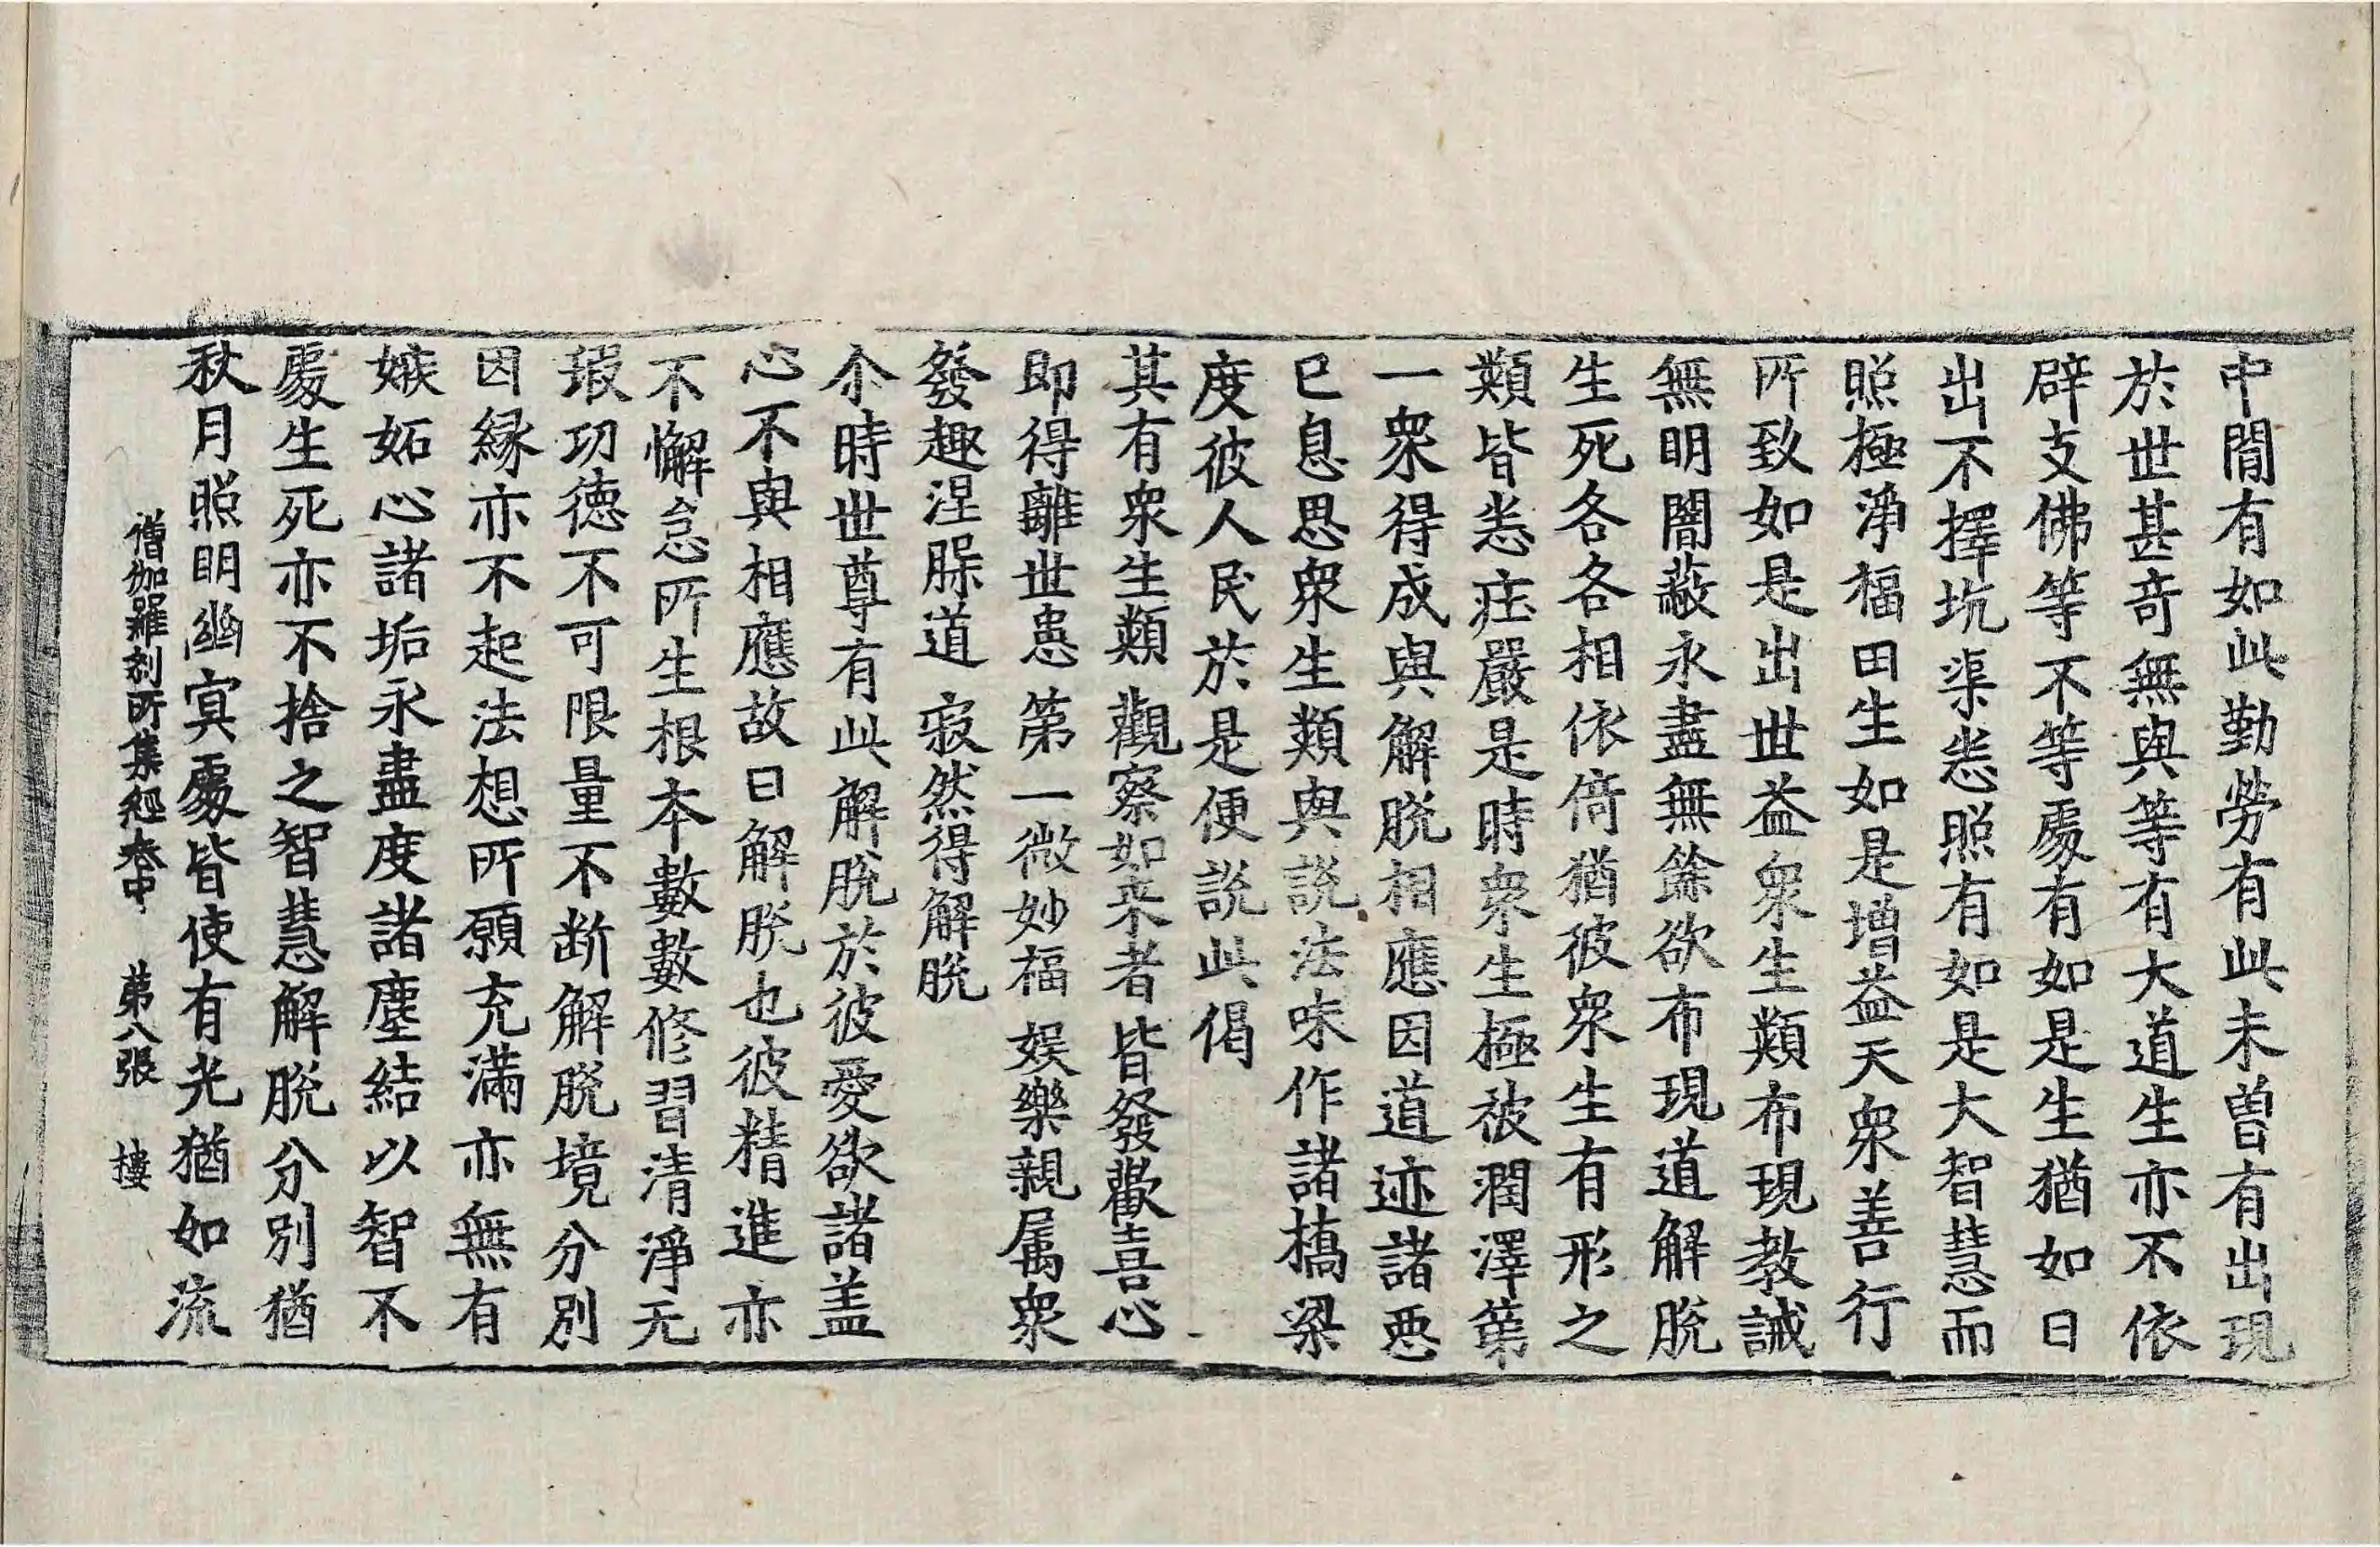 中間有如此勤勞有此未曾有出現
於世甚奇無與等有大道生亦不依
辟支佛等不等處有如是生猶如日
出不擇坑渠悉照有如是大智慧而
照極淨福田生如是增益天衆善行
所致如是出世益衆生類布現教誡
無明闇蔽永盡無餘欲布現道解脫
生死各各相依倚猶彼衆生有形之
類皆悉莊嚴是時衆生極被潤澤第
一衆得成與解脫相應因道迹諸惡
已息思衆生類與說法味作諸橋梁
度彼人民於是便說此偈
其有衆生類 觀察如来者 皆發歡喜心
即得離世患 第一微妙福 娛樂親属衆
發趣涅槃道 寂然得解脫
尒時世尊有此解脫於彼愛欲諸盖
心不與相應故曰解脫也彼精進亦
不懈怠所生根本數數修習清淨无
瑕功德不可限量不断解脫境分別
因緣亦不起法想所願充滿亦無有
嫉妬心諸垢永盡度諸塵結以智不
處生死亦不捨之智慧解脫分別猶
秋月照明幽冥處皆使有光猶如流
僧伽羅刹所集經卷中 第八張 樓